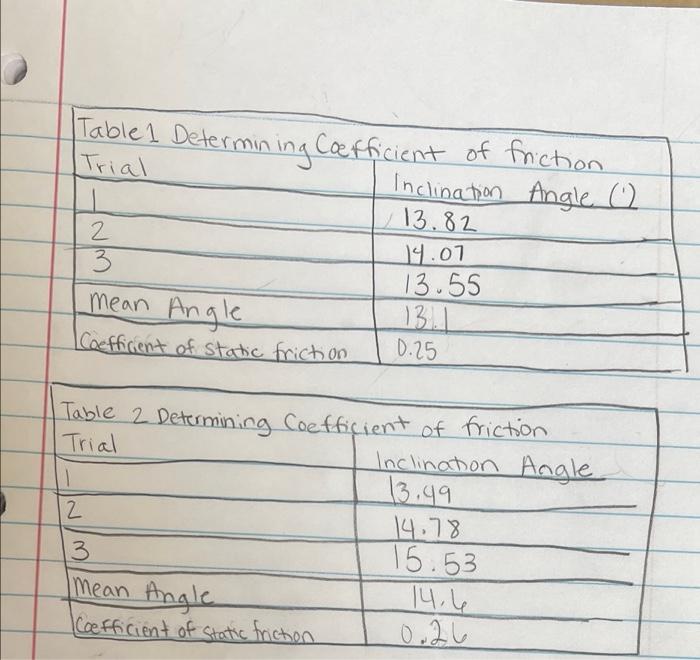 Table 1 Determining Coefficient of friction
Trial Inclination Angle (°)
1 13.82
2 14.07
3 13.55
Mean Angle 13.1
Coefficient of static friction 0.25
Table 2 Determining Coefficient of friction
Trial Inclination Angle
1 13.49
2 14.78
3 15.53
Mean Angle 14.6
Coefficient of static friction 0.26